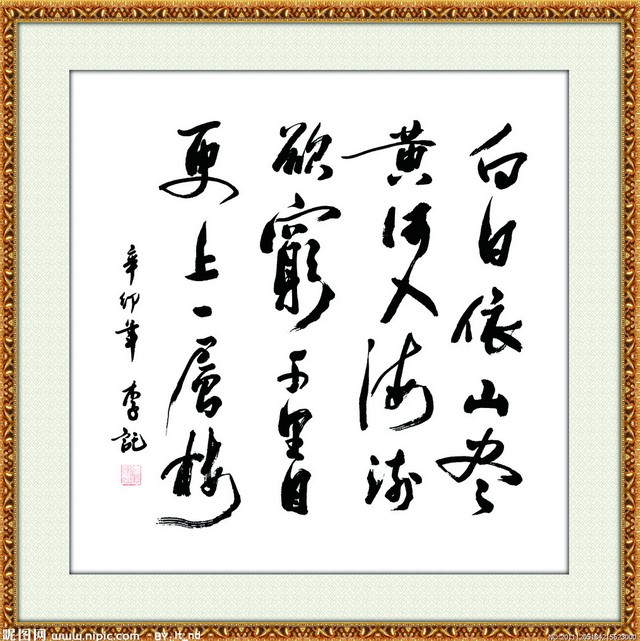 白日依山尽
黄河入海流
欲穷千里目
更上一层楼
辛卯年 李
昵图网 www.nipic.com